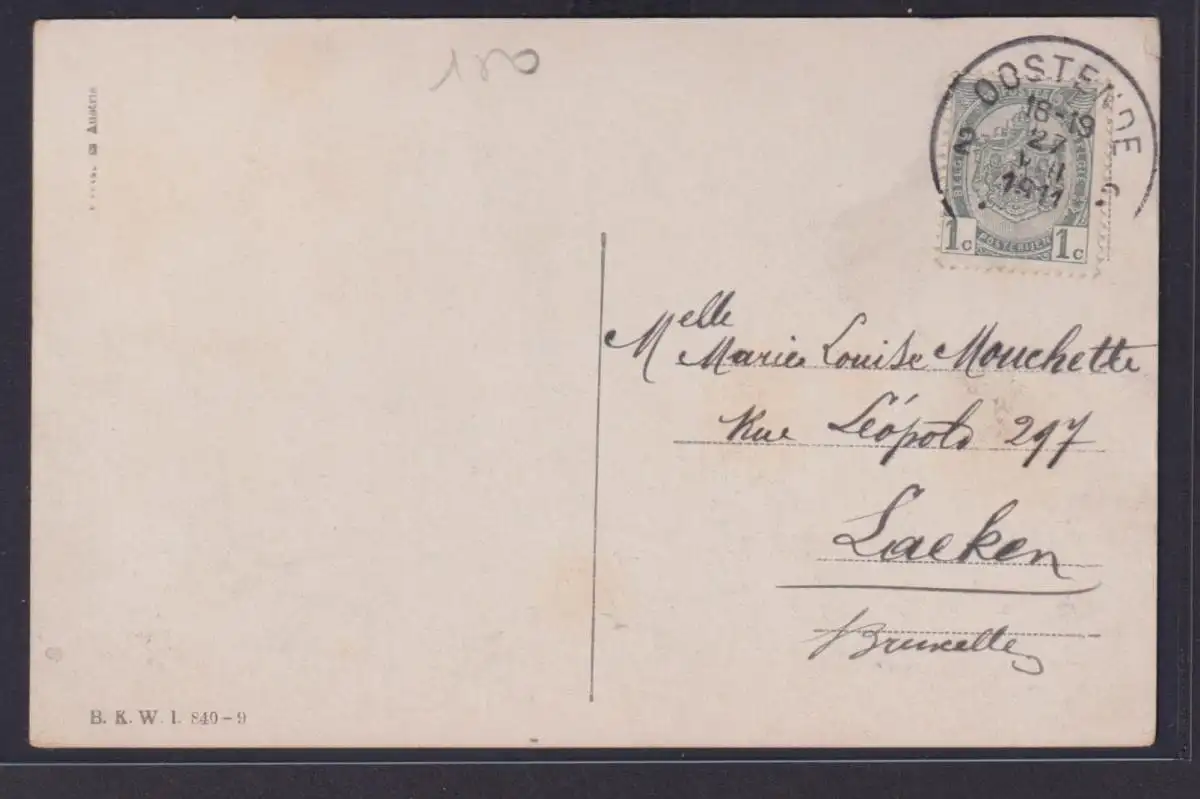 Austria
OOSTENDE
2
18-19
27
1911
BELGIE
1c POSTERIJEN 1c
Melle
Marie Louise Mouchette
Rue Léopold 297
Laeken
Bruxelles
B. K. W. I. 840-9